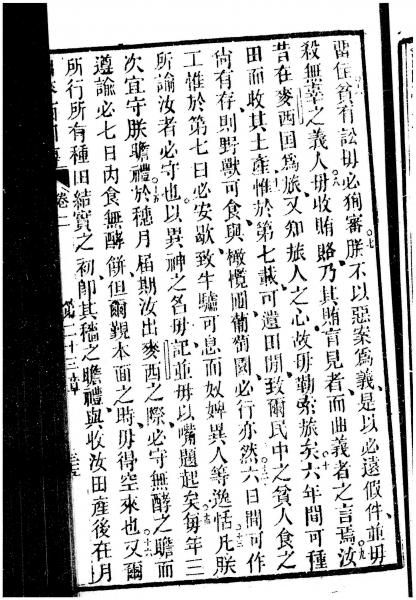 貧有訟毋必狥審朕不以惡案爲義是以必遠假件並毋
殺無辜之義人毋收賄賂乃其賄盲見者而曲義者之言焉汝
昔在麥西国爲旅又知旅人之心故毋勒索旅矣六年間可種
田而收其土產惟於第七載可遺田閒致爾民中之貧人食之
尙有存則野獸可食與橄欖園葡萄園必行亦然六日間可作
工惟於第七日必安歇致牛驢可息而奴婢異人等逸恬凡朕
所諭汝者必守也以異神之名毋記並毋以嘴題起矣每年三
次宜守朕瞻禮於穗月屆期汝出麥西之際必守無酵之瞻而
遵諭必七日內食無酵餅但爾覲本面之時毋得空來也又爾
所行所有種田結實之初卽其穡之瞻禮與收汝田產後在月
卷二 第二十三章